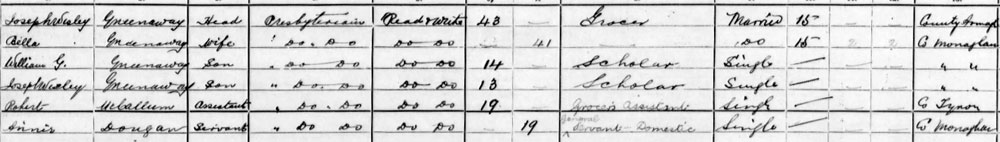 Joseph Wesley Greenaway Head Presbyterian Read & Write 43 — Grocer Married 15 — — County Armagh
Bella Greenaway Wife " Do. Do Do Do 41 Do 15 Co Monaghan
William G. Greenaway Son " Do Do Do Do 14 — Scholar Single — " "
Joseph Wesley Greenaway Son " Do. Do Do Do 13 — Scholar Single — " "
Robert McCallum Assistant " Do. Do Do Do 19 — Grocers Assistant Single — Co Tyrone
Dougan Servant " Do Do Do Do — 19 General Servant - Domestic Single — Co Monaghan